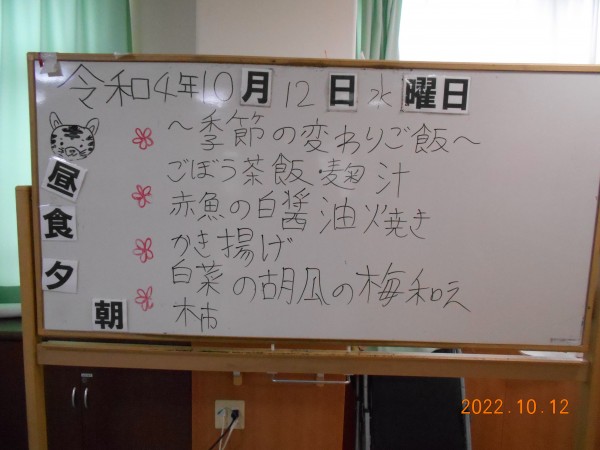 令和4年10月12日水曜日
～季節の変わりご飯～
ごぼう茶飯・麹汁
赤魚の白醤油焼き
かき揚げ
白菜の胡瓜の梅和え
柿
昼
食
夕
朝
2022.10.12